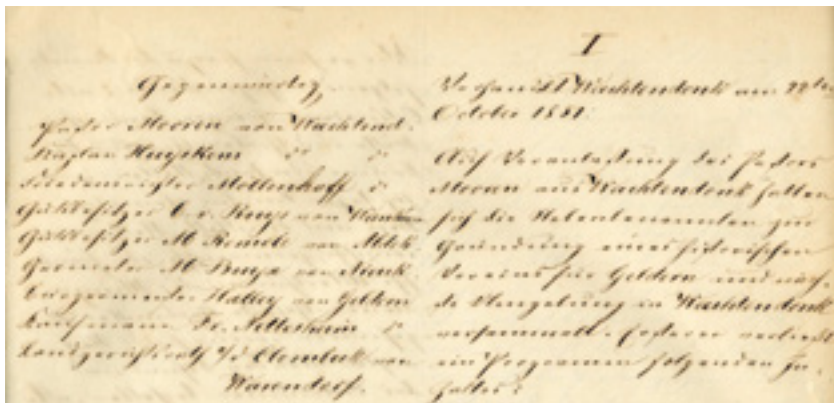 I
Gegenwärtig
Pastor Mooren von Wachtend.
Kaplan Huyskens do do
Friedensrichter Mottenhoff do
Gutsbesitzer v. Ruys von
Gutsbesitzer M von
Geometer M Buyx von Nieuk.
Bürgermeister von Geldern
Kaufmann Fr. Nettesheim do
Landgerichtsrath a/d von
Warendorf.
Verhandelt Wachtendonk am 22ten
October 1851.
Auf Veranlassung des Pastors
Mooren aus Wachtendonk hatten
sich die Nebenbenannten zur
Gründung eines historischen
Vereins für Geldern und
de Umgebung in Wachtendonk
versammelt. Ersterer verliest
ein Programm folgenden In-
haltes: